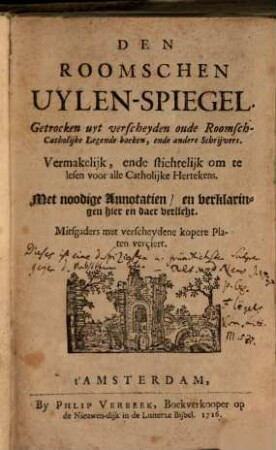 DEN
ROOMSCHEN
UYLEN-SPIEGEL.
Getrocken uyt verscheyden oude Roomsch-
Catholijke Legende boeken, ende andere Schrijvers.
Vermakelijk, ende stichtelijk om te
lesen voor alle Catholijke Hertekens.
Met noodige Annotatien / en verklarin-
gen hier en daer verlicht.
Mitsgaders met verscheydene kopere Pla-
ten verciert.
Dieses ist eine der
gegen d.
t'AMSTERDAM,
By PHLIP VERBEEK, Boekverkooper op
de Nieuwen-dijk in de Luiterze Bijbel. 1716.